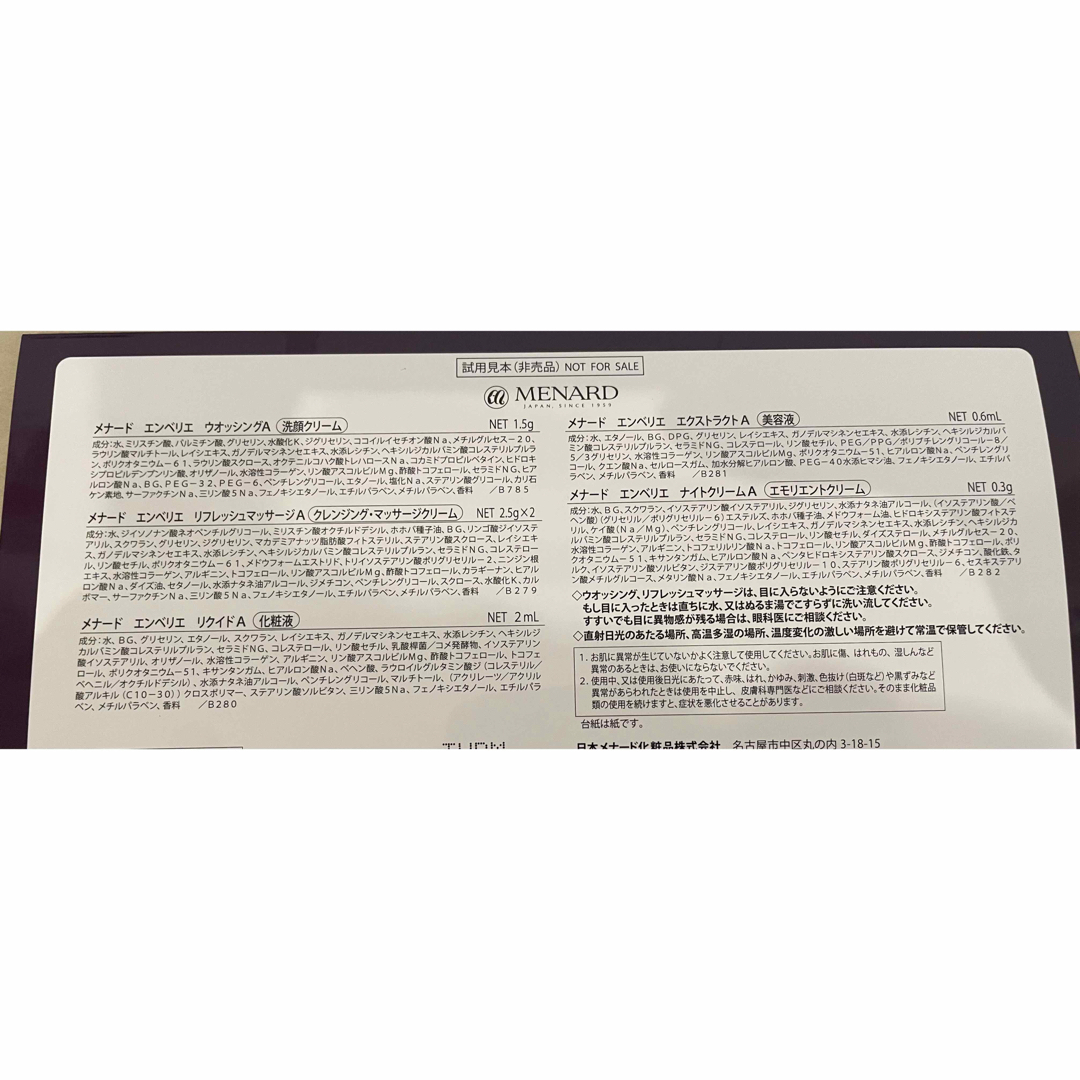 試用見本(非売品) NOT FOR SALE
MENARD
JAPAN, SINCE 1959
メナード エンベリエ ウオッシングA (洗顔クリーム) NET 1.5g
成分:水、ミリスチン酸、パルミチン酸、グリセリン、水酸化K、ジグリセリン、ココイルイセチオン酸Na、メチルグルセス-20、
ラウリン酸マルチトール、レイシエキス、ガノデルマシネンセエキス、水添レシチン、ヘキシルジカルバミン酸コレステリルプルラ
ン、ポリクオタニウム-61、ラウリン酸スクロース、オクテニルコハク酸トレハロースNa、コカミドプロピルベタイン、ヒドロキ
シプロピルデンプンリン酸、オリザノール、水溶性コラーゲン、リン酸アスコルビルMg、酢酸トコフェロール、セラミドNG、ヒア
ルロン酸Na、BG、PEG-32、PEG-6、ペンチレングリコール、エタノール、塩化Na、ステアリン酸グリコール、カリ石
ケン素地、サーファクチンNa、三リン酸5Na、フェノキシエタノール、エチルパラベン、メチルパラベン、香料 /B785
メナード エンベリエ リフレッシュマッサージA (クレンジング・マッサージクリーム) NET 2.5g×2
成分:水、ジイソノナン酸ネオペンチルグリコール、ミリスチン酸オクチルドデシル、ホホバ種子油、BG、リンゴ酸ジイソステ
アリル、スクワラン、グリセリン、ジグリセリン、マカデミアナッツ脂肪酸フィトステリル、ステアリン酸スクロース、レイシエキ
ス、ガノデルマシネンセエキス、水添レシチン、ヘキシルジカルバミン酸コレステリルプルラン、セラミドNG、コレステロー
ル、リン酸セチル、ポリクオタニウム-61、メドウフォームエストリド、トリイソステアリン酸ポリグリセリル-2、ニンジン根
エキス、水溶性コラーゲン、アルギニン、トコフェロール、リン酸アスコルビルMg、酢酸トコフェロール、カラギーナン、ヒアル
ロン酸Na、ダイズ油、セタノール、水添ナタネ油アルコール、ジメチコン、ペンチレングリコール、スクロース、水酸化K、カル
ボマー、サーファクチンNa、三リン酸5Na、フェノキシエタノール、エチルパラベン、メチルパラベン、香料 /B279
メナード エンベリエ リクイドA (化粧液) NET 2mL
成分:水、BG、グリセリン、エタノール、スクワラン、レイシエキス、ガノデルマシネンセエキス、水添レシチン、ヘキシルジ
カルバミン酸コレステリルプルラン、セラミドNG、コレステロール、リン酸セチル、乳酸桿菌/コメ発酵物、イソステアリン
酸イソステアリル、オリザノール、水溶性コラーゲン、アルギニン、リン酸アスコルビルMg、酢酸トコフェロール、トコフェ
ロール、ポリクオタニウム-51、キサンタンガム、ヒアルロン酸Na、ベヘン酸、ラウロイルグルタミン酸ジ(コレステリル/
ベヘニル/オクチルドデシル)、水添ナタネ油アルコール、ペンチレングリコール、マルチトール、(アクリレーツ/アクリル
酸アルキル(C10-30))クロスポリマー、ステアリン酸ソルビタン、三リン酸5Na、フェノキシエタノール、エチルパラベ
ン、メチルパラベン、香料 /B280
メナード エンベリエ エクストラクトA (美容液) NET 0.6mL
成分:水、エタノール、BG、DPG、グリセリン、レイシエキス、ガノデルマシネンセエキス、水添レシチン、ヘキシルジカルバ
ミン酸コレステリルプルラン、セラミドNG、コレステロール、リン酸セチル、PEG/PPG/ポリブチレングリコール-8/
5/3グリセリン、水溶性コラーゲン、リン酸アスコルビルMg、ポリクオタニウム-51、ヒアルロン酸Na、ペンチレングリ
コール、クエン酸Na、セルロースガム、加水分解ヒアルロン酸、PEG-40水添ヒマシ油、フェノキシエタノール、エチルパ
ラベン、メチルパラベン、香料 /B281
メナード エンベリエ ナイトクリームA (エモリエントクリーム) NET 0.3g
成分:水、BG、スクワラン、イソステアリン酸イソステアリル、ジグリセリン、水添ナタネ油アルコール、(イソステアリン酸/ベ
ヘン酸)(グリセリル/ポリグリセリル-6)エステルズ、ホホバ種子油、メドウフォーム油、ヒドロキシステアリン酸フィトステ
リル、ケイ酸(Na/Mg)、ペンチレングリコール、レイシエキス、ガノデルマシネンセエキス、水添レシチン、ヘキシルジカ
ルバミン酸コレステリルプルラン、セラミドNG、コレステロール、リン酸セチル、ダイズステロール、メチルグルセス-20、
水溶性コラーゲン、アルギニン、トコフェリルリン酸Na、トコフェロール、リン酸アスコルビルMg、酢酸トコフェロール、ポリ
クオタニウム-51、キサンタンガム、ヒアルロン酸Na、ペンタヒドロキシステアリン酸スクロース、ジメチコン、酸化鉄、タ
ルク、イソステアリン酸ソルビタン、ジステアリン酸ポリグリセリル-10、ステアリン酸ポリグリセリル-6、セスキステアリ
ン酸メチルグルコース、メタリン酸Na、フェノキシエタノール、エチルパラベン、メチルパラベン、香料 /B282
◇ウオッシング、リフレッシュマッサージは、目に入らないようにご注意ください。
もし目に入ったときは直ちに水、又はぬるま湯でこすらずに洗い流してください。
すすいでも目に異物感が残る場合は、眼科医にご相談ください。
◇直射日光のあたる場所、高温多湿の場所、温度変化の激しい場所を避けて常温で保管してください。
1. お肌に異常が生じていないかよく注意して使用してください。お肌に傷、はれもの、湿しんなど
異常のあるときは、お使いにならないでください。
2. 使用中、又は使用後日光にあたって、赤味、はれ、かゆみ、刺激、色抜け(白斑など)や黒ずみなど
異常があらわれたときは使用を中止し、皮膚科専門医などにご相談ください。そのまま化粧品
類の使用を続けますと、症状を悪化させることがあります。
台紙は紙です。
日本メナード化粧品株式会社 名古屋市中区丸の内 3-18-15